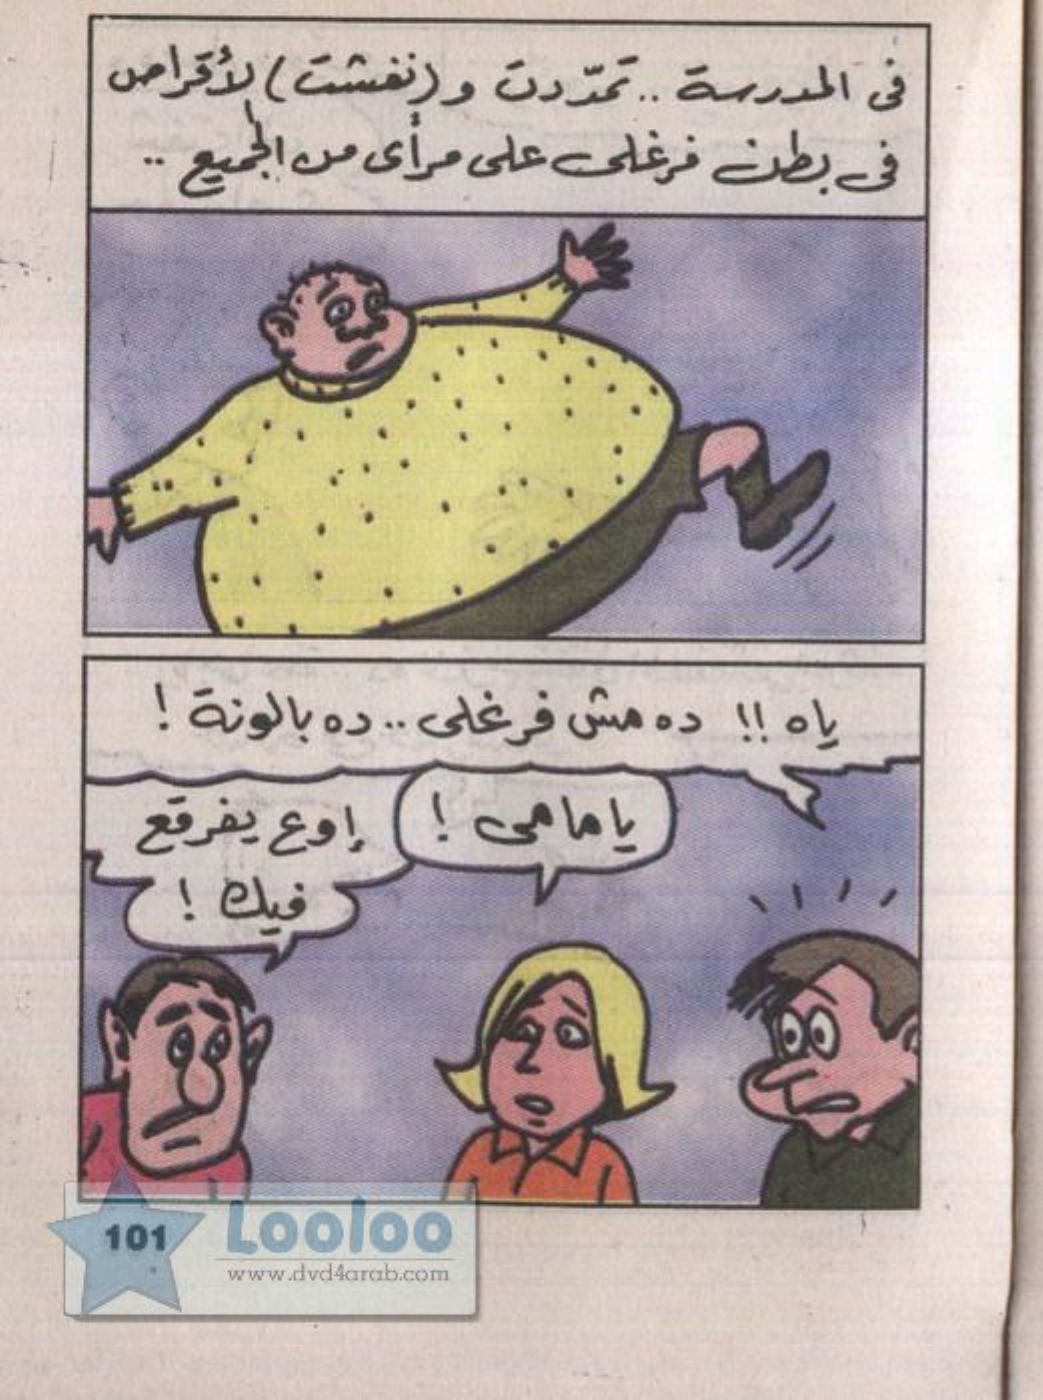 فى المدرسة .. تمدّدت و (نفشت) الأقراص
فى بطن فرغلى على مرأى من الجميع ..
ياه !! ده مش فرغلى .. ده بالونة !
ياما مى !
إوع يفرقع
فيك !
101
Looloo
www.dvd4arab.com